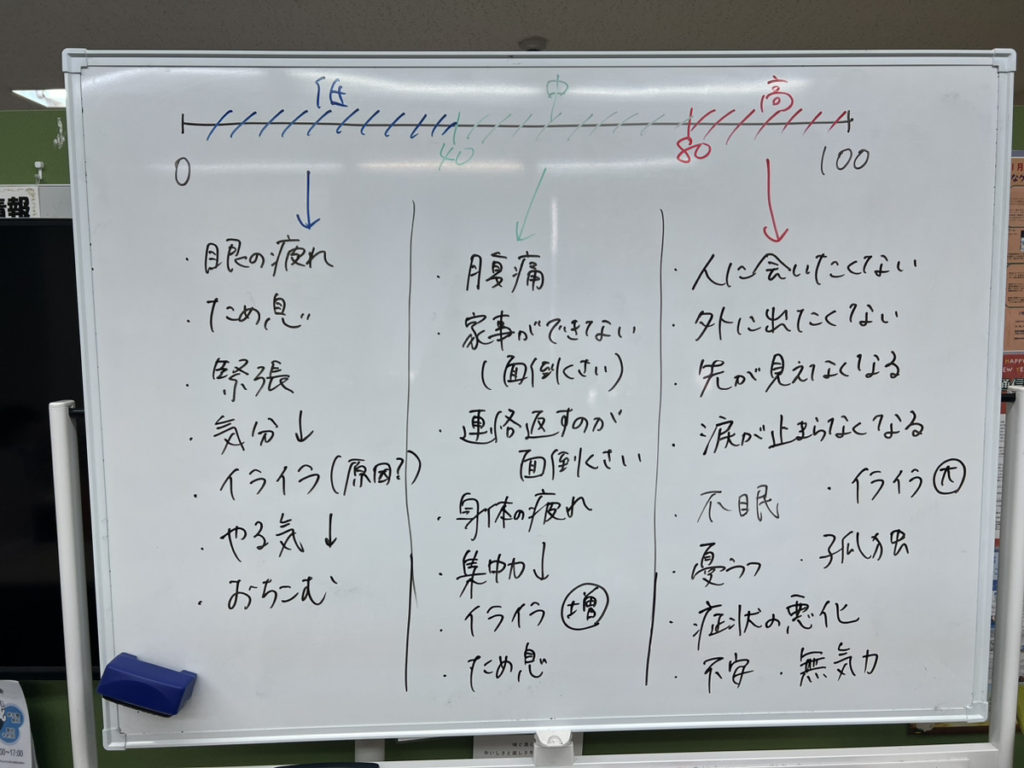 低 中 高
0 40 80 100
・眼の疲れ
・ため息
・緊張
・気分↓
・イライラ(原因?)
・やる気↓
・おちこむ
・腹痛
・家事ができない
(面倒くさい)
・連絡返すのが
面倒くさい
・身体の疲れ
・集中力↓
・イライラ 増
・ため息
・人に会いたくない
・外に出たくない
・先が見えなくなる
・涙が止まらなくなる
・不眠 ・イライラ 大
・憂うつ ・孤独
・症状の悪化
・不安 ・無気力
情報
HAPPY